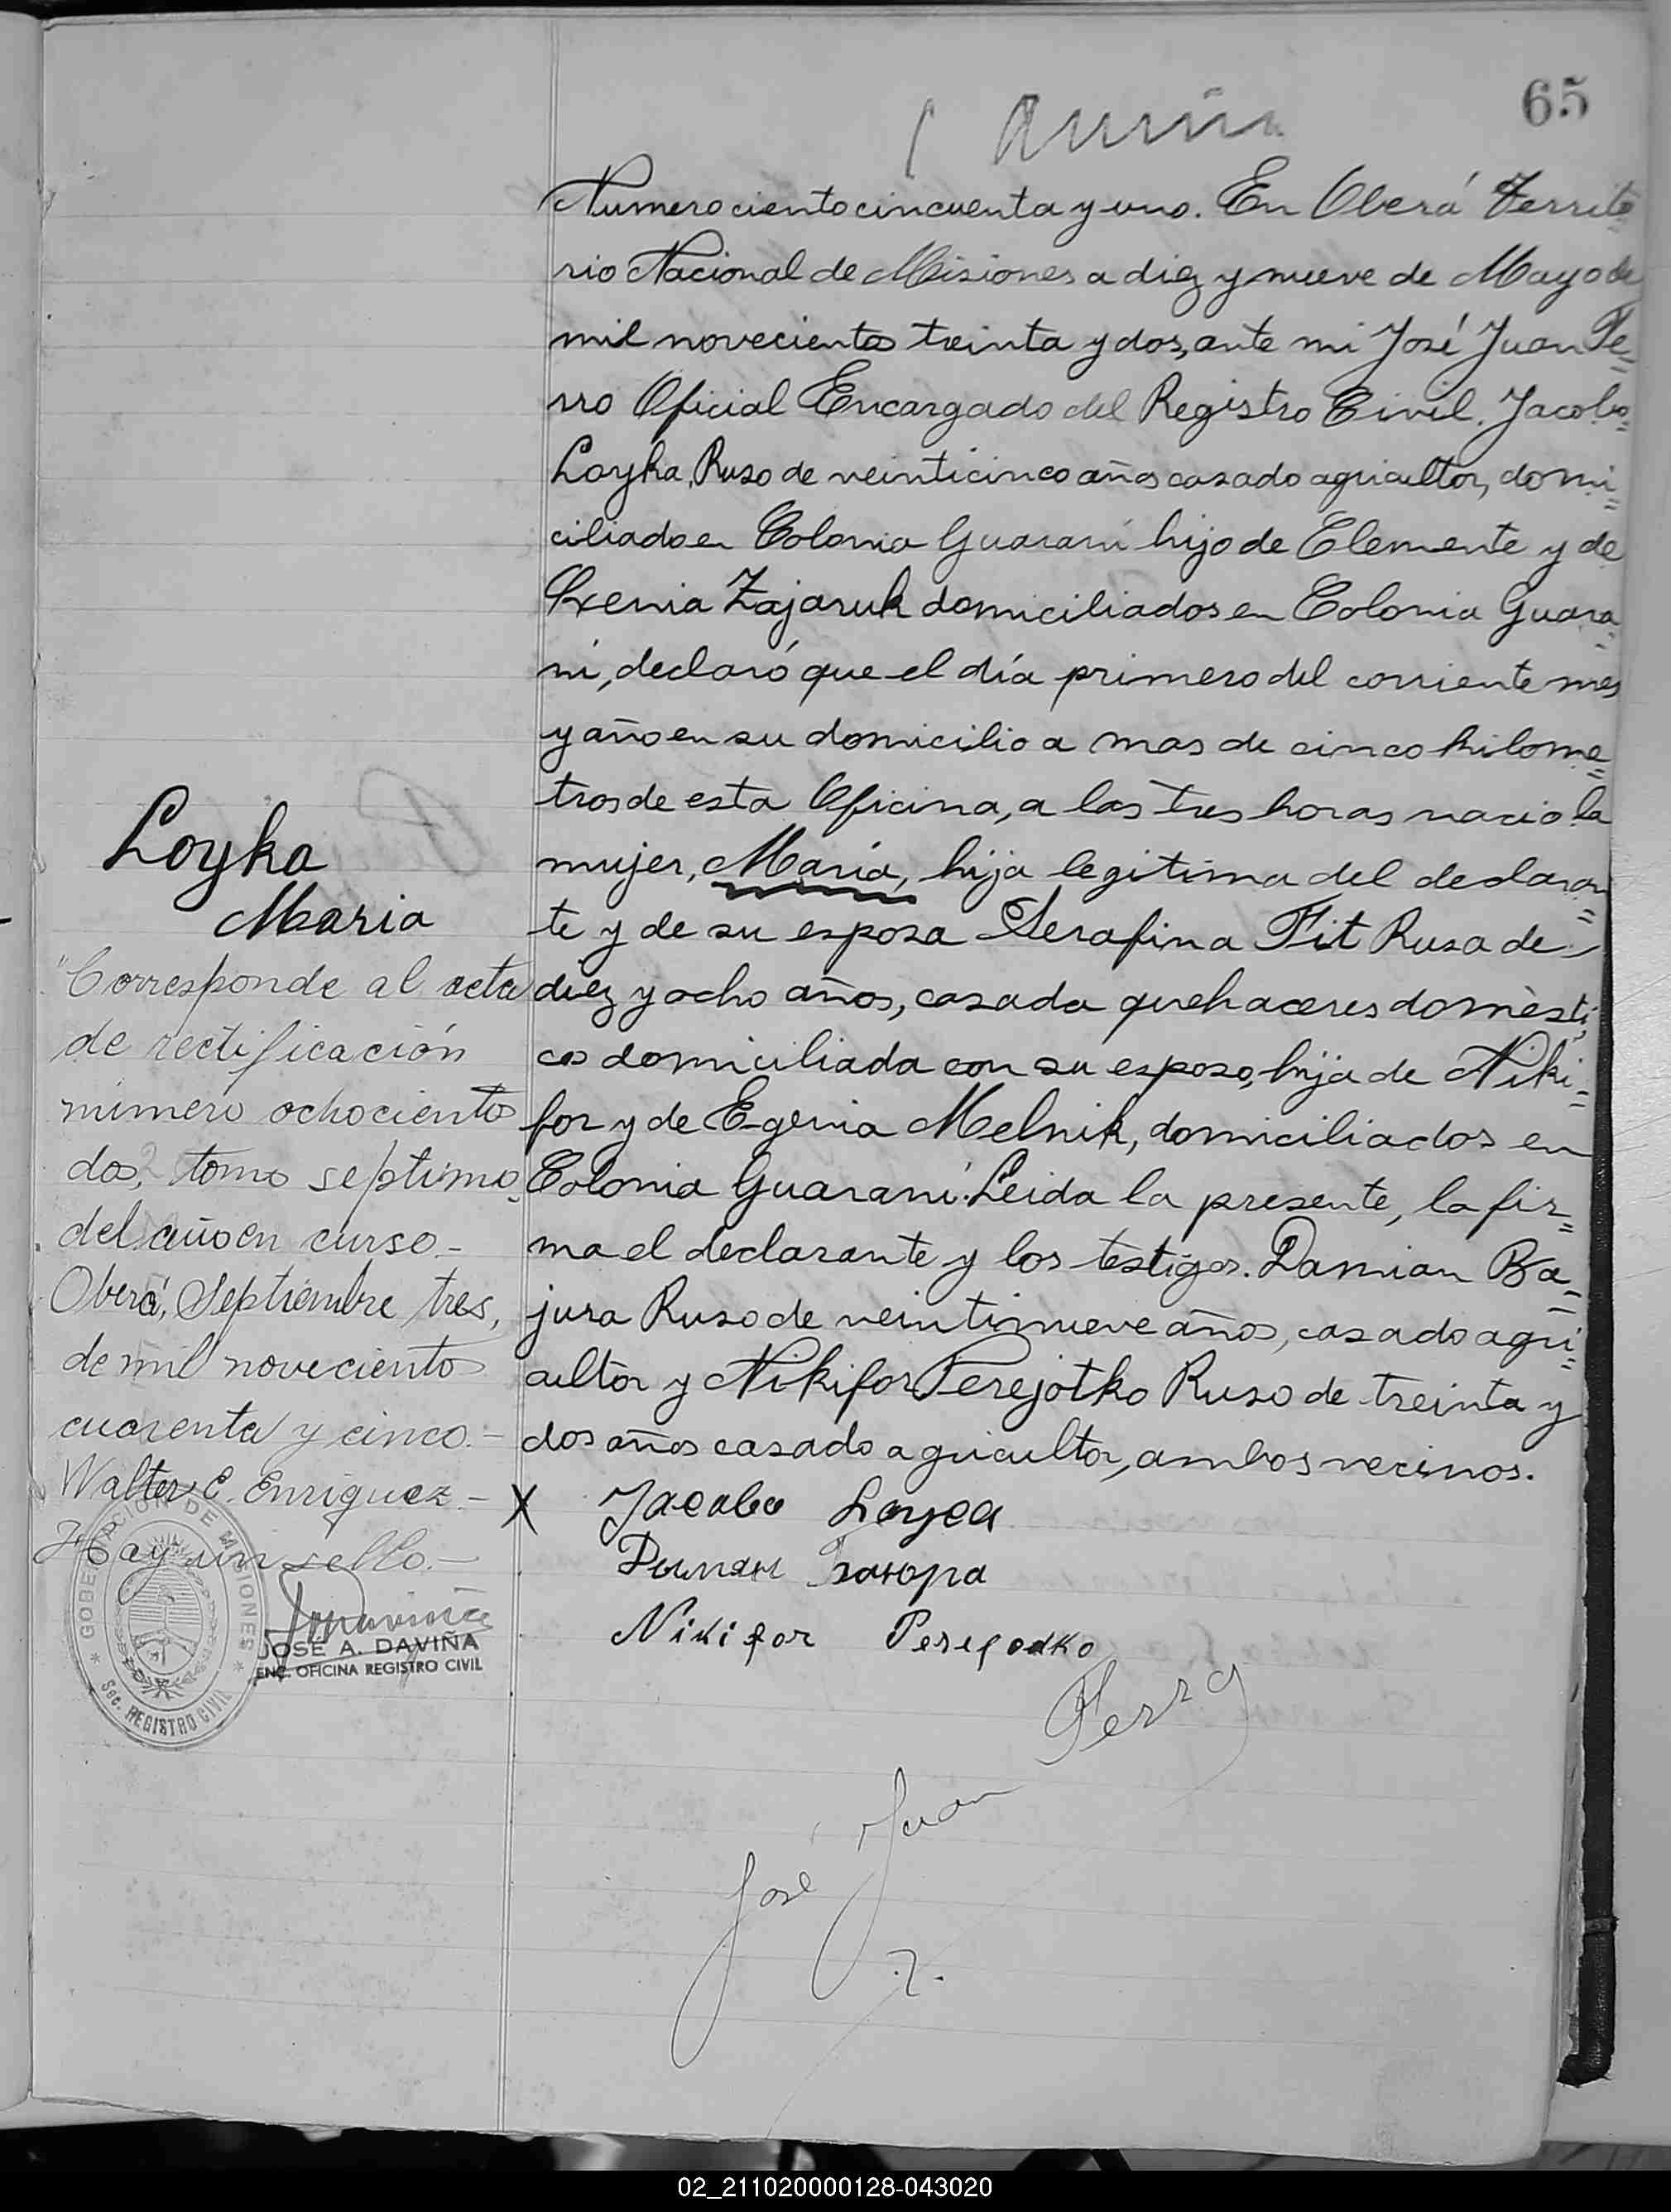 65
Numero ciento cincuenta y uno. En Oberá Territo
rio Nacional de Misiones a diez y nueve de Mayo de
mil novecientos treinta y dos, ante mi José Juan Fe=
rro Oficial Encargado del Registro Civil. Jacobo=
Loyka, Ruso de veinticinco años casado agricultor, domi=
ciliado en Colonia Guaraní hijo de Clemente y de
Oxenia Zajaruk domiciliados en Colonia Guara=
ni, declaró que el día primero del corriente mes
y año en su domicilio a mas de cinco kilome=
tros de esta Oficina, a las tres horas nacio la
mujer, María, hija legitima del declaran=
te y de su esposa Serafina Fit Rusa de
diez y ocho años, casada quehaceres domèsti=
cos domiciliada con su esposo, hija de Niki=
for y de Egenia Melnik, domiciliados en
Colonia Guaraní. Leida la presente, la fir=
ma el declarante y los testigos. Damian Ba=
jura Ruso de veintinueve años, casado agri=
cultor y Nikifor Perejotko Ruso de treinta y
dos años casado agricultor, ambos vecinos.
X Jacobo Loyca
Демян Баюра
Nikifor
José Juan Ferro
Loyka
Maria
"Corresponde al acta
de rectificación
número ochociento
dos, tomo septimo
del año en curso.-
Oberá, Septiembre tres,
de mil noveciento
cuarenta y cinco.-
Walter E. Enriguez.-
Hay un sello.-
GOBERNACION DE MISIONES
Sec. REGISTRO CIVIL
JOSÉ A. DAVIÑA
ENC. OFICINA REGISTRO CIVIL
02_211020000128-043020